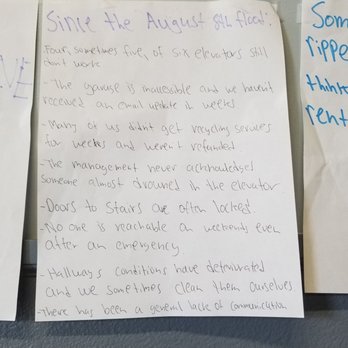 Since the August 8th flood:
Four, sometimes five, of six elevators still
don't work
- The garage is inaccessible and we haven't
received an email update in weeks
- Many of us didn't get recycling services
for weeks and weren't refunded.
- The management never acknowledged
someone almost drowned in the elevator.
- Doors to stairs are often locked
- No one is reachable on weekends even
after an emergency.
- Hallways conditions have deteriorated
and we sometimes clean them ourselves
- There has been a general lack of communication
Som
rippe
think
rent